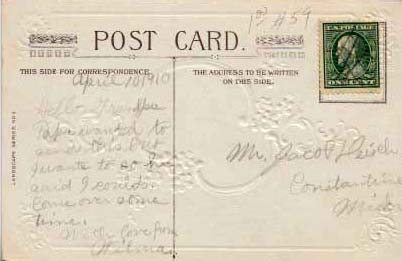 1st #59
POST CARD.
THIS SIDE FOR CORRESPONDENCE.
THE ADDRESS TO BE WRITTEN
ON THIS SIDE.
April 10 1910
Hello Grandpa
Papa wanted to
send this but
wants to
said I could
Come over some
time.
With love from
Wilma
Mr. Jacob
Constantine
Mich
LANDSCAPE SERIES
U.S. POSTAGE
ONE CENT